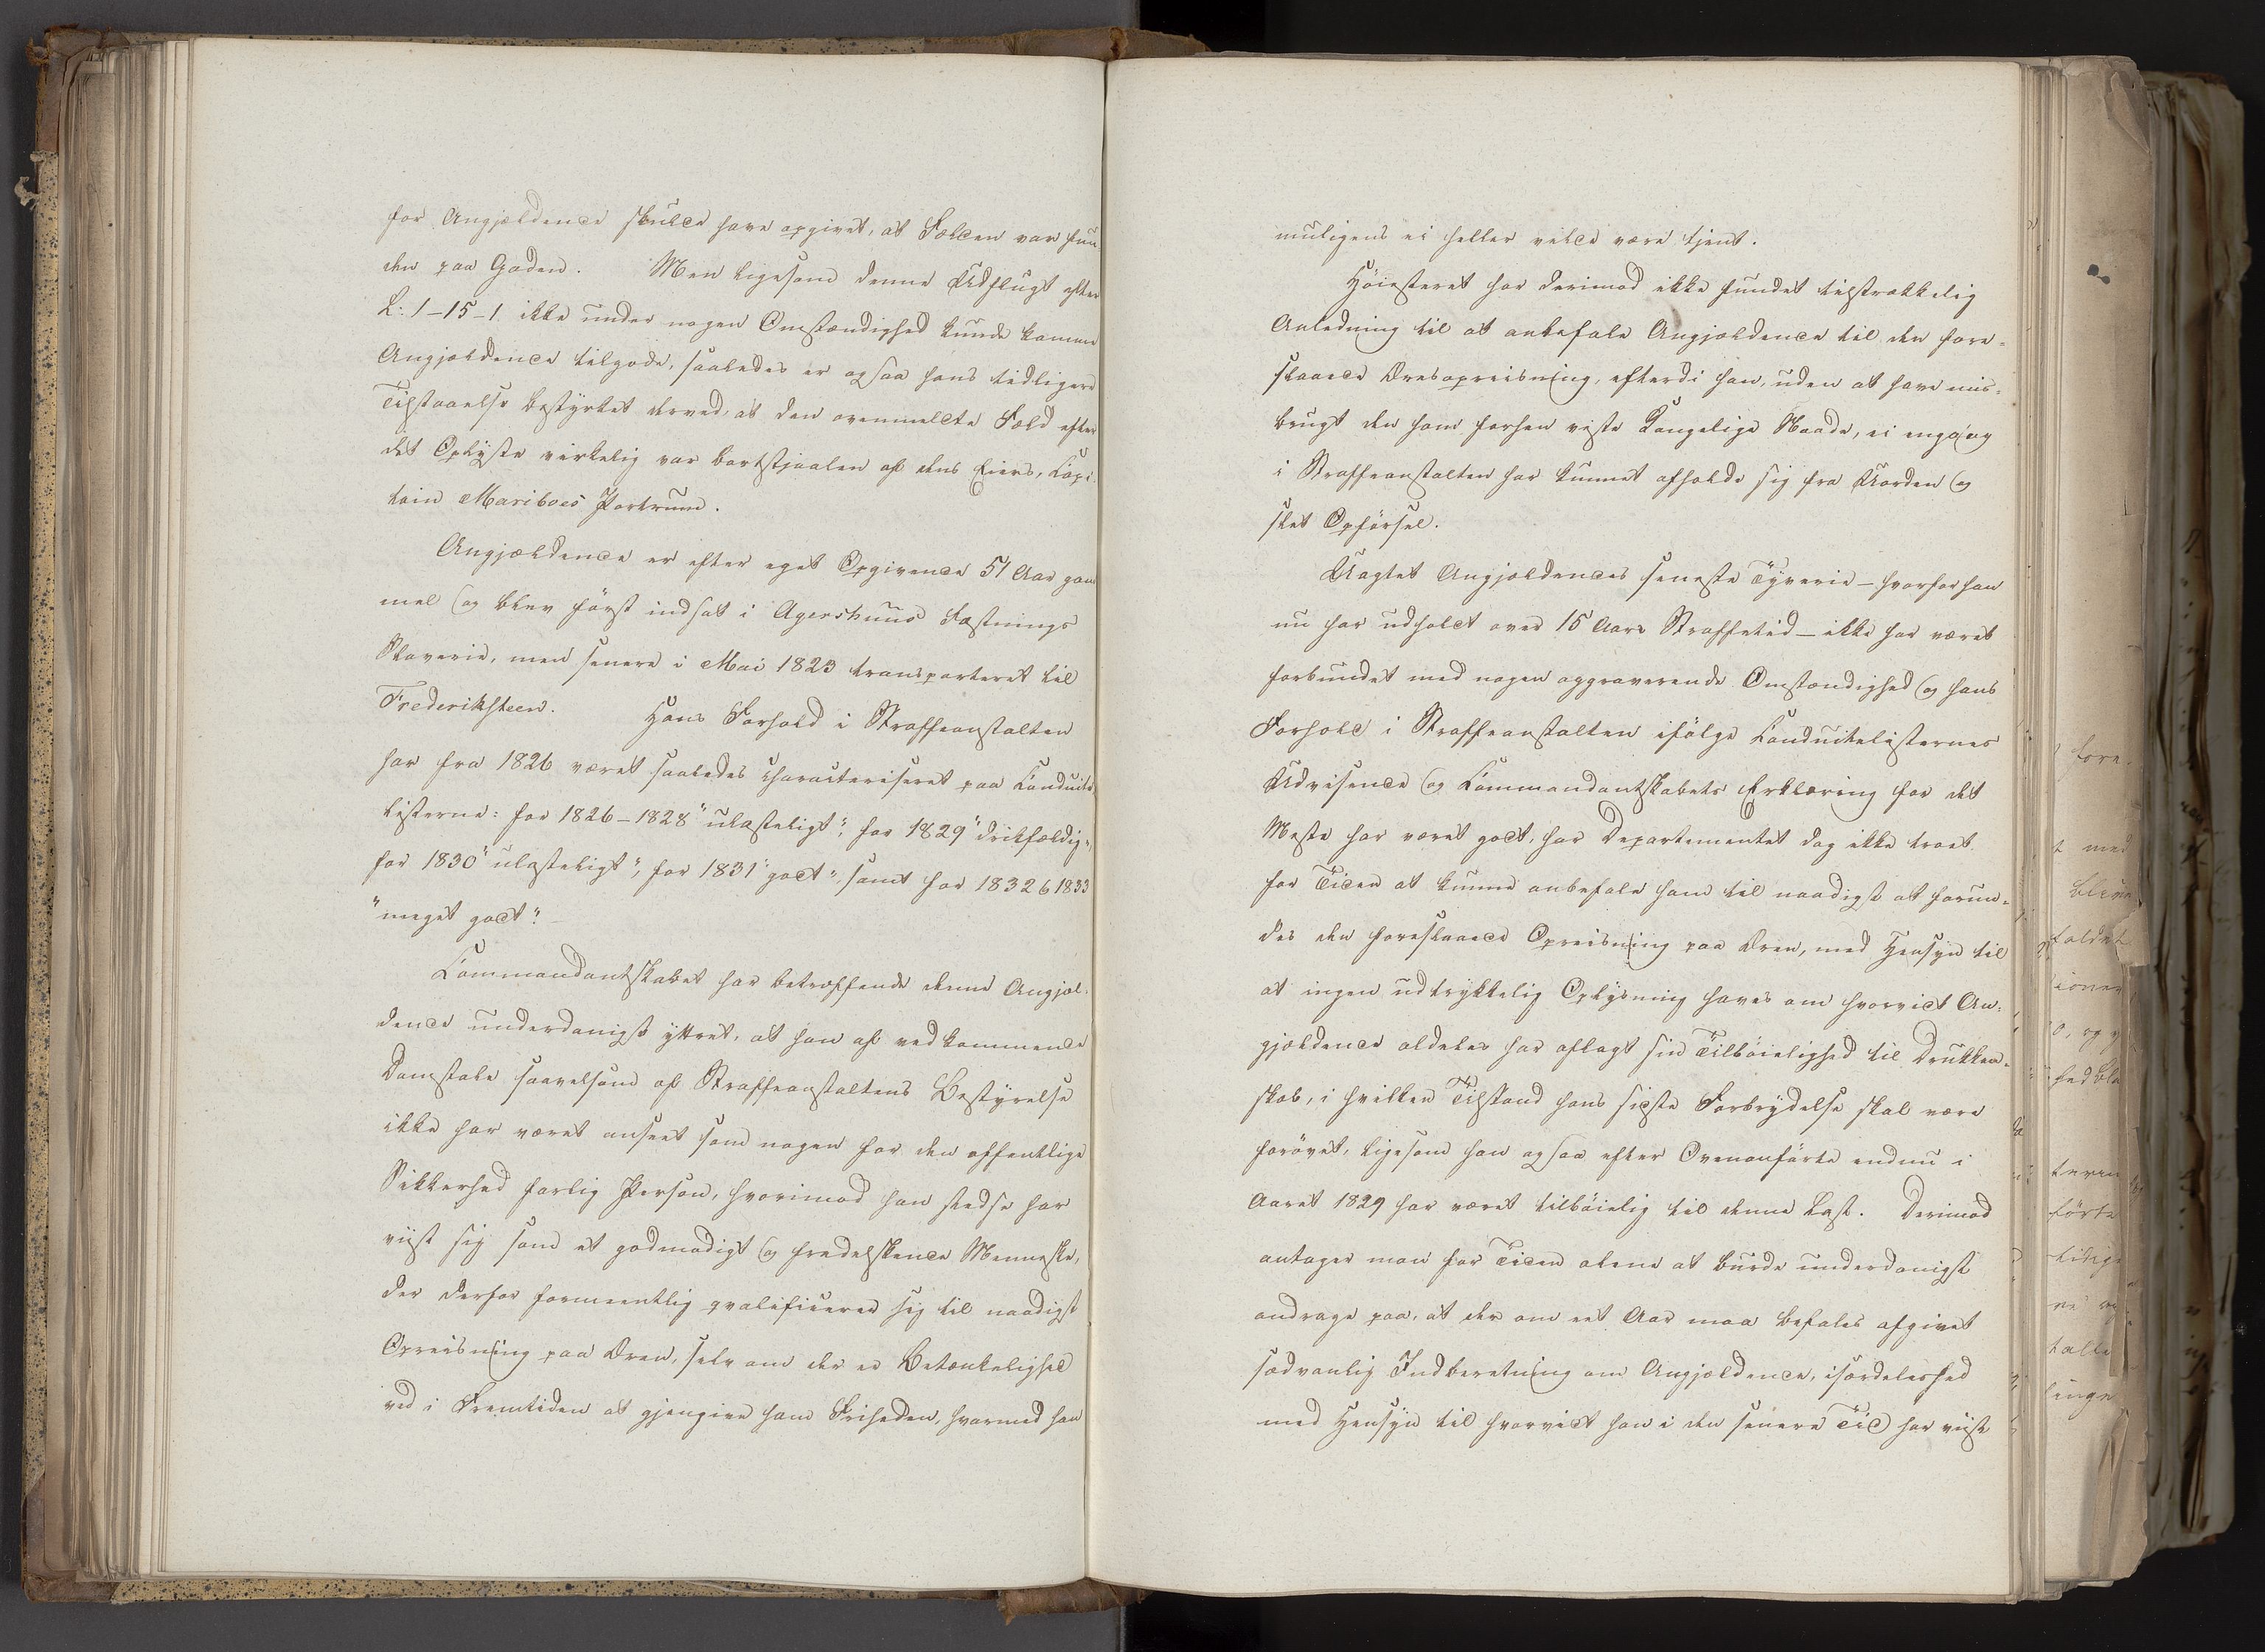 for Angjældende skulle have opgivet, at Folden var fun-
den paa Gaden. Men ligesom denne Udflugt efter
L: 1-15-1 ikke under nogen Omstændighed kunde komme
Angjældende tilgode, saaledes er ogsaa hans tidligere
Tilstaaelse bestyrket derved, at den ovenmeldte Fold efter
det Oplyste virkelig var bortstjaalen af dens Eiers, Capi-
tain Mariboes Portrum.
Angjældende er efter eget Opgivende 51 Aar gam-
mel og blev først indsat i Agershuus Fæstnings
Slaverie, men senere i Mai 1823 transporteret til
Frederiksteen. Hans Forhold i Straffeanstalten
har fra 1826 været saaledes characteriseret paa Conduite-
listerne: for 1826-1828 "ulasteligt", for 1829 "drikfældig",
for 1830 "ulasteligt", for 1831 "godt", samt for 1832 & 1833
"meget godt".
Commandantskabet har betræffende denne Angjæl-
dende underdanigst yttret, at han af vedkommende
Domstole saavelsom af Straffeanstaltens Bestyrelse
ikke har været anseet som nogen for den offentlige
Sikkerhed farlig Person, hvorimod han stedse har
viist sig som et godmodigt og fredelskende Menneske,
der derfor formeentlig qvalificerer sig til naadigst
Opreisning paa Æren, selv om der er Betænkelighed
ved i Fremtiden at gjengive ham Friheden, hvormed han
muligens ei heller vilde være tjent.
Høiesteret har derimod ikke fundet tilstrækkelig
Anledning til at anbefale Angjældende til den fore-
slaaede Æresopreisning, efterdi han, uden at have mis-
brugt den ham forhen viste Kongelige Naade, ei engang
i Straffeanstalten har kunnet afholde sig fra Uorden og
slet Opførsel.
Uagtet Angjældendes seneste Tyverie - hvorfor han
nu har udholdt over 15 Aars Straffetid - ikke har været
forbundet med nogen aggraverende Omstændighed og hans
Forhold i Straffeanstalten ifølge Conduitelisternes
Udvisende og Commandantskabets Erklæring for det
Meste har været godt, har Departementet dog ikke troet
for Tiden at kunne anbefale ham til naadigst at forun-
des den foreslaaede Opreisning paa Æren, med Hensyn til
at ingen udtrykkelig Oplysning haves om hvorvidt An-
gjældende aldeles har aflagt sin Tilbøielighed til Drukken-
skab, i hvilken Tilstand hans sidste Forbrydelse skal være
forøvet, ligesom han ogsaa efter Ovenanførte endnu i
Aaret 1829 har været tilbøielig til denne Last. Derimod
antager man for Tiden alene at burde underdanigst
andrage paa, at der om eet Aar maa befales afgivet
sædvanlig Indberetning om Angjældende, isærdeleshed
med Hensyn til hvorvidt han i den senere Tid har viist